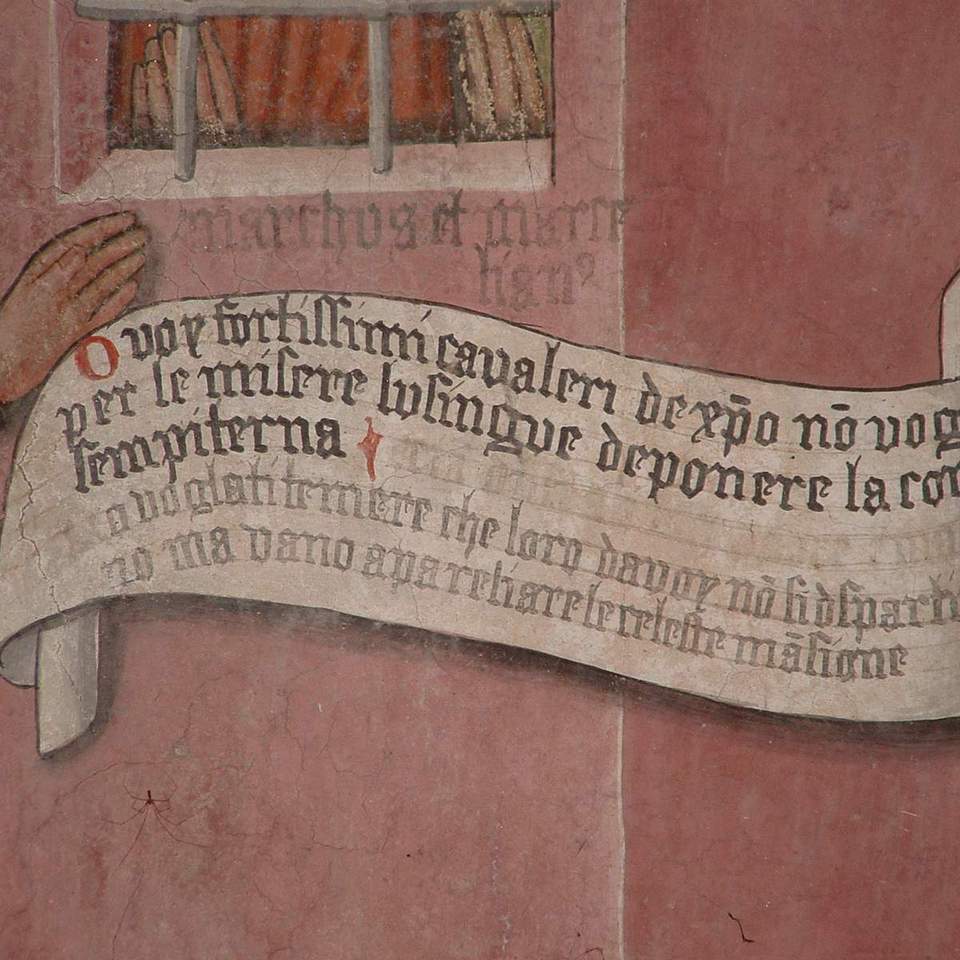 marchus et marce
lian9
O voy fortissimi cavaleri de xp̄o nō vog
per le misere lusingve deponere la cor
sempiterna
no voglati temere che loro da voy nō si dsparti
no ma vano aparechiare le celeste māsione